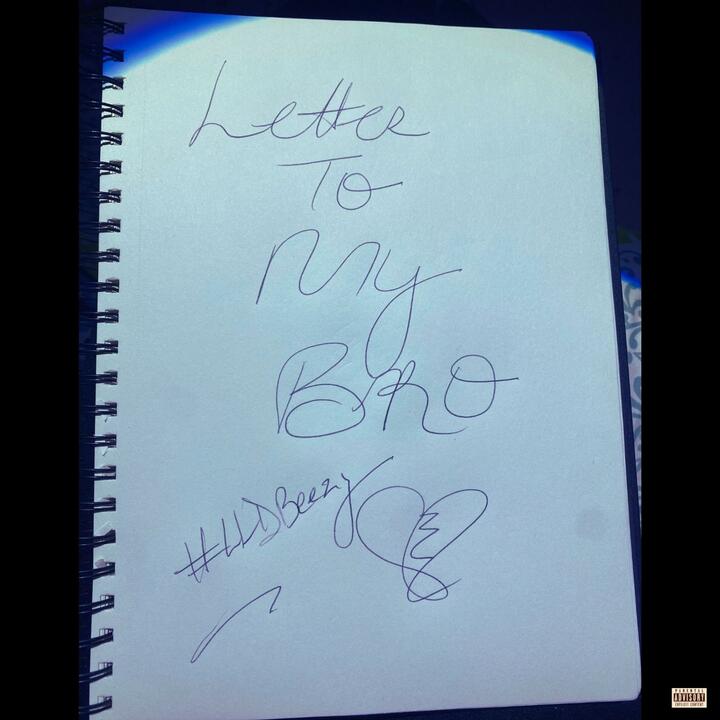 Letter
To
My
Bro
#LLDBeezy
PARENTAL
ADVISORY
EXPLICIT CONTENT